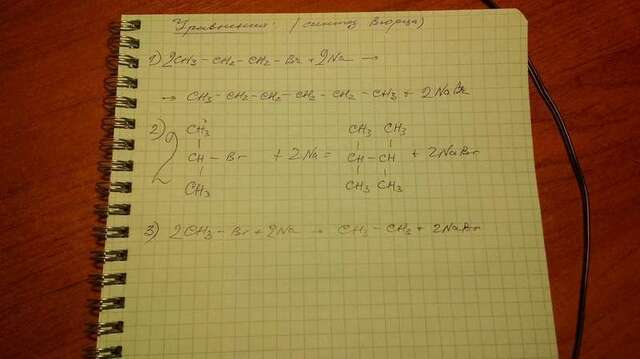 Уравнения: (синтез Вюрца)
1) 2CH₃-CH₂-CH₂-Br + 2Na →
→ CH₃-CH₂-CH₂-CH₂-CH₂-CH₃ + 2NaBr
2) CH₃ CH₃ CH₃
2 CH-Br + 2Na = CH-CH + 2NaBr
CH₃ CH₃ CH₃
3) 2CH₃-Br + 2Na → CH₃-CH₃ + 2NaBr